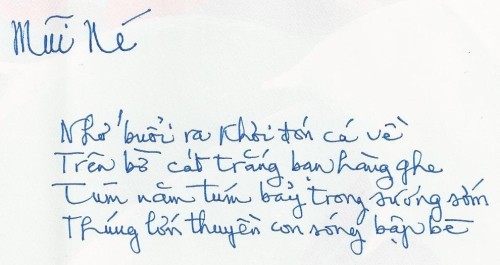 Mũi Né
Nhớ buổi ra khơi đón cá về
Trên bờ cát trắng bạn hàng ghe
Túm năm túm bảy trong sương sớm
Thúng lớn thuyền con sóng bập bề